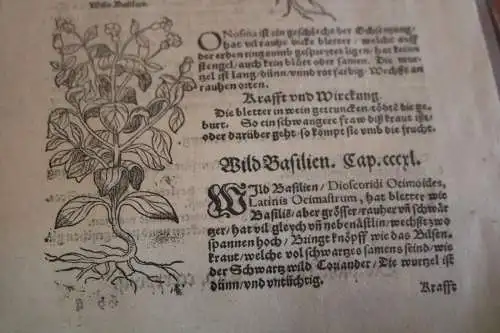 Wild Basilien.
ONosma ist ein geschlecht der Ochsenzung/
hat vil rauhe dicke bletter / welche auff
der erden ring umb gespreytet ligen / hat keinen
stengel / auch kein blůet oder samen. Die wur-
tzel ist lang / dünn / vnnd rotfarbig. Wechßt an
rauhen orten.
Krafft vnd Wirckung.
Die bletter in wein getruncken / tödtẽ die ge-
burt. So ein schwangere fraw diß kraut ißt /
oder darüber geht / so kompt sie vmb die frucht.
Wild Basilien. Cap. cccxl.
WJld Basilien / Dioscoridi Ocimoides,
Latinis Ocimastrum, hat bletter wie
Basilië / aber grösser / rauher vñ schwär
tzer / hat vil gleych vñ nebenästlin / wechßt zwo
spannen hoch / Bringt knöpff wie das Bülsen-
kraut / welche vol schwartzes samens seind / wie
der Schwartz wild Coriander / Die wurtzel ist
dünn / vnd vntüchtig.
Krafft